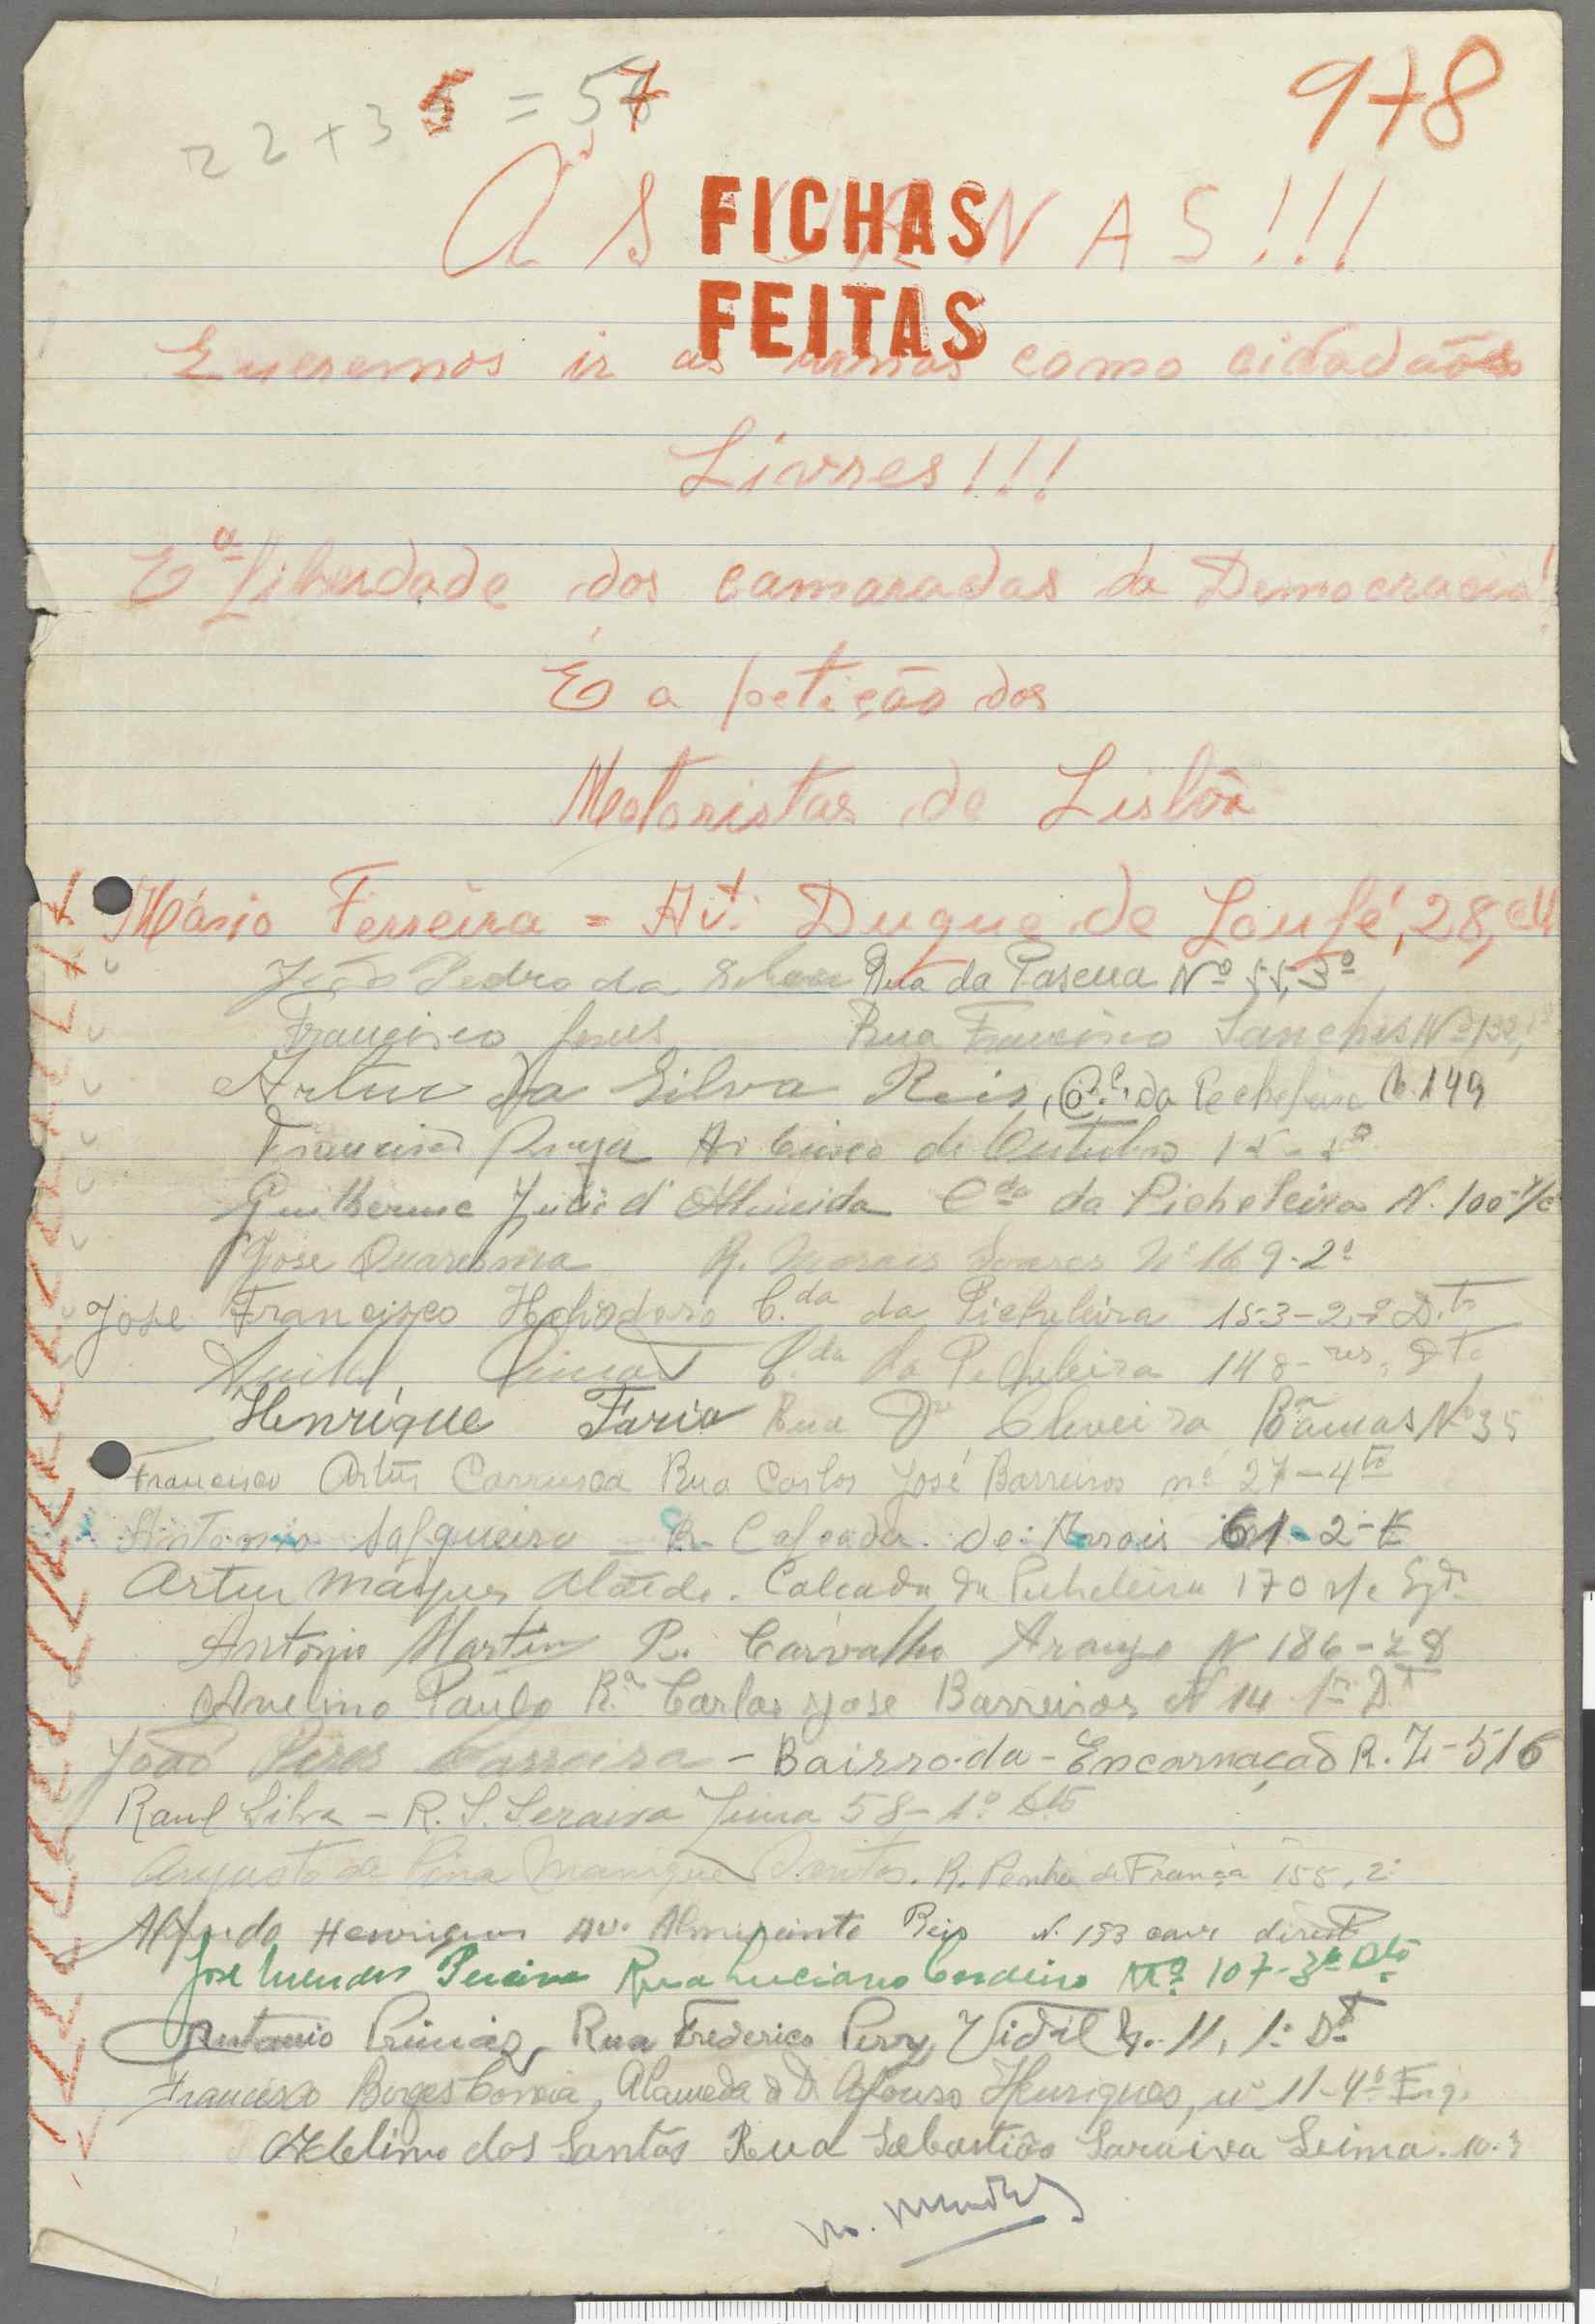 22+35=57
978
ÁS URNAS!!!
FICHAS
FEITAS
Queremos ir as urnas como cidadãos
Livres!!!
E a Liberdade dos camaradas da Democracia!
É a petição dos
Motoristas de Lisbôa
Mário Ferreira = Avt. Duque de Loulé, 28, c/v
João Pedro da Silva Rua da Pascua Nº 55, 3º
Francisco Jesus Rua Francisco Sanches Nº 132,
Artur da Silva Reis, da Pecheleira N. 149
Francisco Av Cinco de Outubro
Guilherme Julio d'Almeida Cda da Picheleira N. 100-r/c
Jose Quaresma R. Morais Soares Nº 169-2º
Jose Francisco Heliodoro C.da da Picheleira 153-2º D.to
C.da da Picheleira 148-res. Dto
Henrique Faria Rua Dr Oliveira Ramos Nº 35
Francisco Artur Carrusca Rua Carlos José Barreiros nº 27-4to
Antonio Salgueiro - R. Calçada de Arrois 61-2-E
Artur Marques Alaide. Calçada da Picheleira 170 r/c Eqd.
Antonio Martins R. Carvalho Araujo N 186-2 D
Avelino Paulo R.a Carlos Jose Barreiros N 14 1º D.t
João Pires Carreira - Bairro-da-Encarnação R. 7-516
Raul Silva - R. S. Seraiva Lima 58-1º Dto
Augusto de Pina Manique Santos. R. Penha de França 155, 2º
Alfredo Henriques Av. Almirante Reis N. 133 cave direito
José Mendes Pereira Rua Luciano Cordeiro Nº 107-3º Dto
Antonio Rua Frederico Perry Vidal N. 11, 1º Dt
Francisco Borges Correia, Alameda de D. Afonso Henriques, nº 11-4º Esq.
Adelino dos Santos Rua Sebastião Saraiva Leima. 10.3
M. Mendes